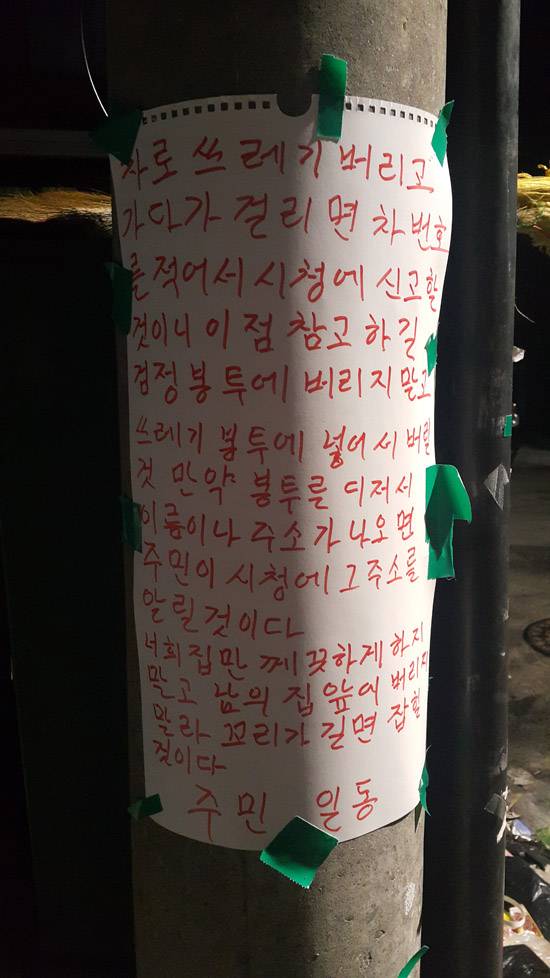 차로 쓰레기 버리고
가다가 걸리면 차 번호
를 적어서 시청에 신고할
것이니 이 점 참고 하길
검정 봉투에 버리지 말고
쓰레기 봉투에 넣어서 버릴
것 만약 봉투를 디저서
이름이나 주소가 나오면
주민이 시청에 그 주소를
알릴 것이다
너희 집만 깨끗하게 하지
말고 남의 집 앞에 버리지
말라 꼬리가 길면 잡힐
것이다
주민 일동